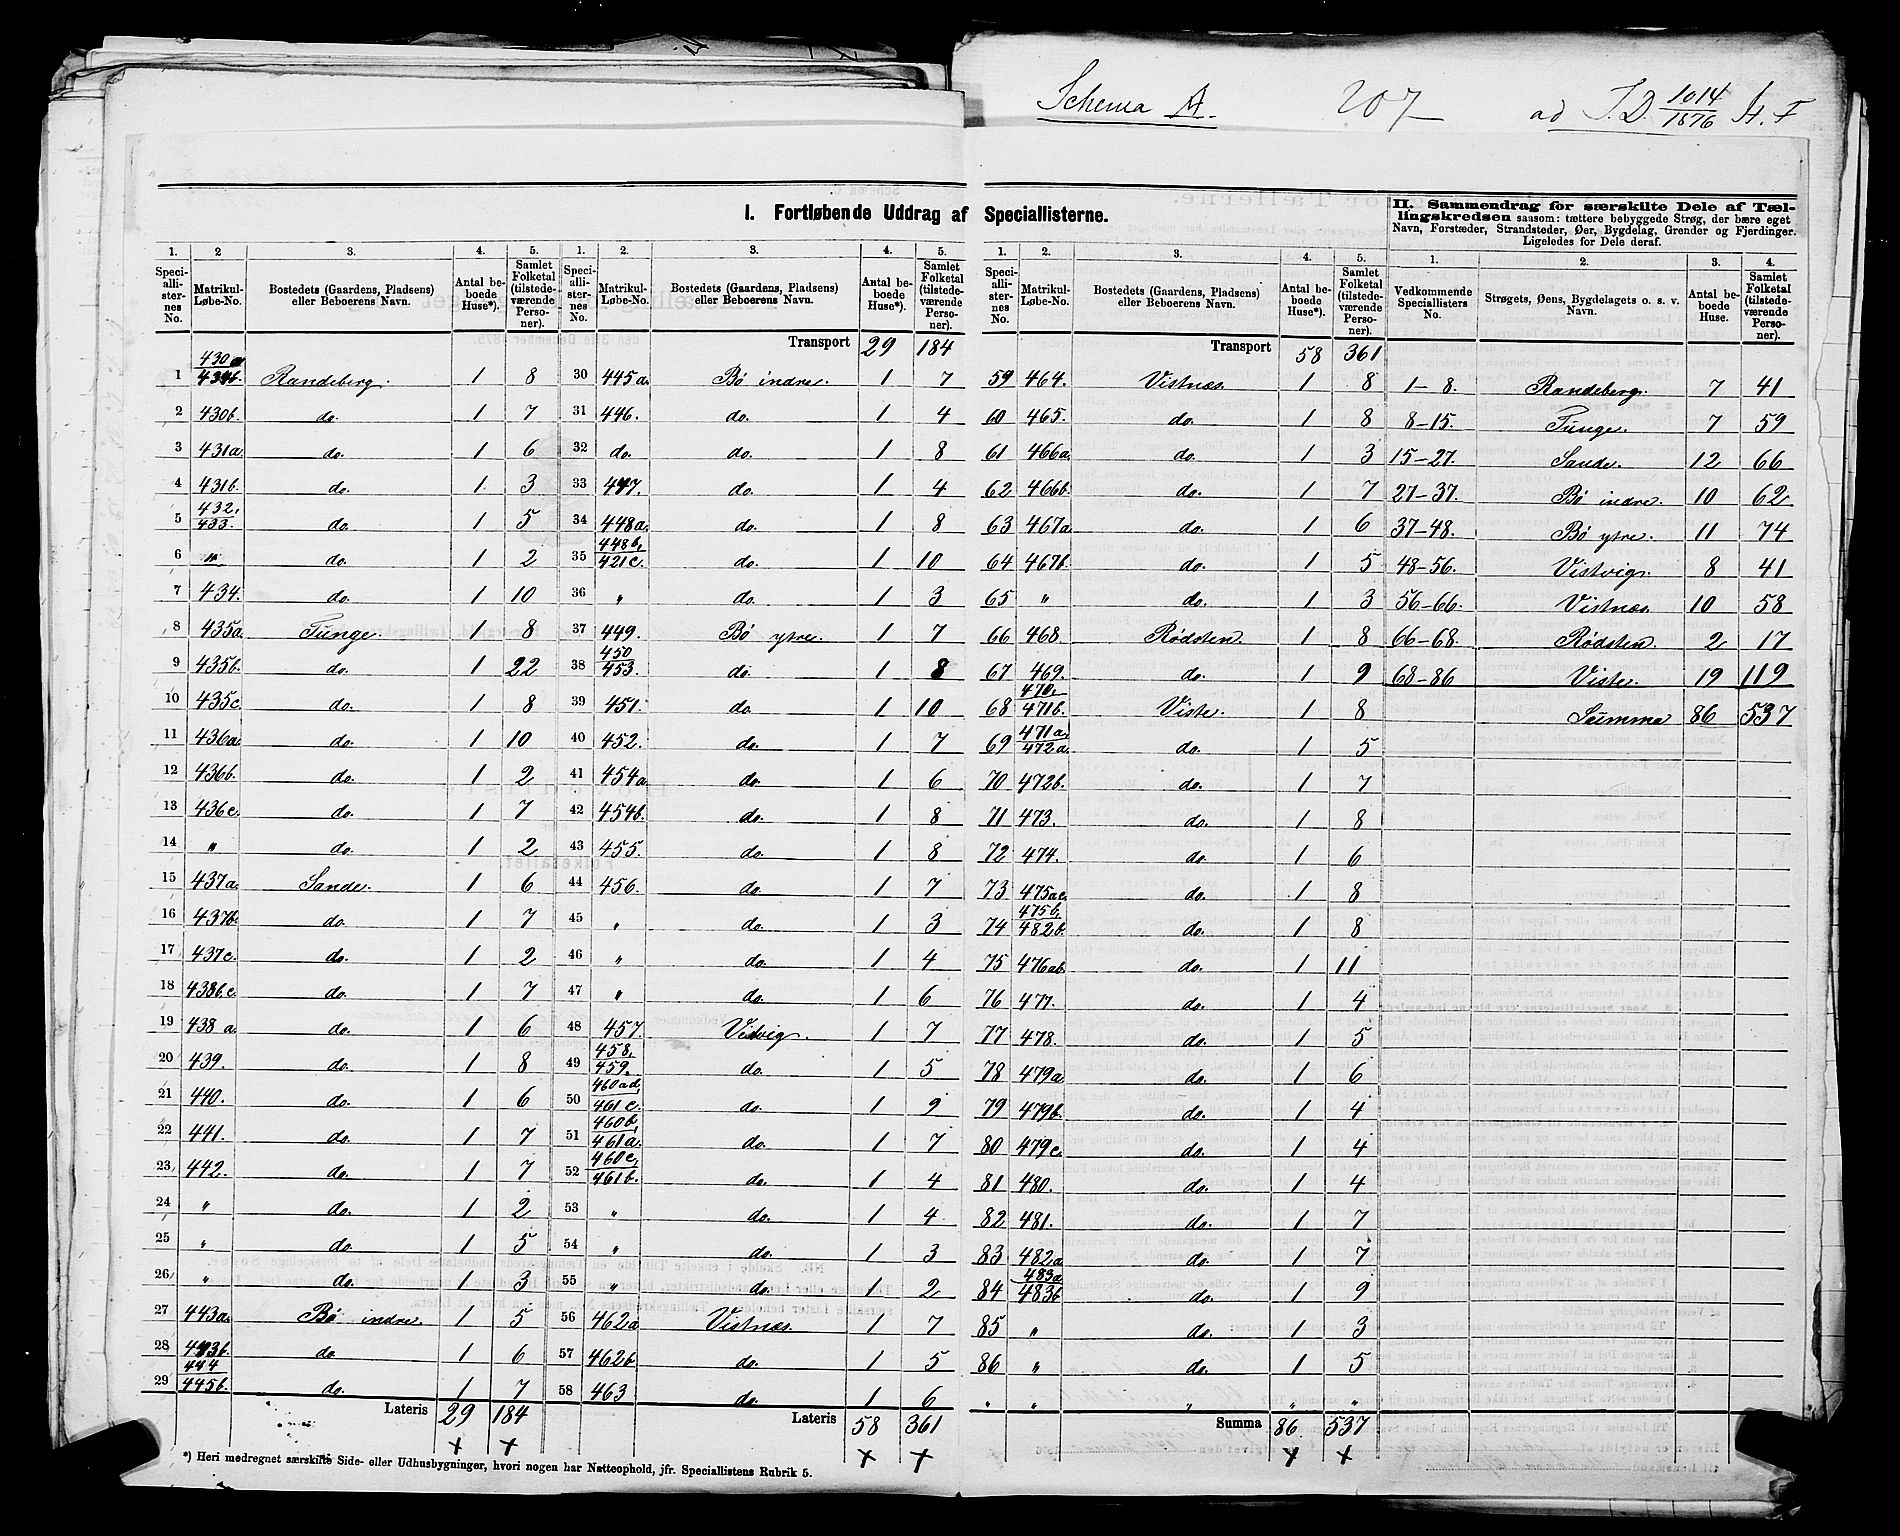 Schema A. 207 ad T.D. 1014/1876 H. F
I. Fortløbende Uddrag af Speciallisterne.
II. Sammendrag for særskilte Dele af Tæl-
lingskredsen saasom: tættere bebyggede Strøg, der bære eget
Navn, Forstæder, Strandsteder, Øer, Bygdelag, Grender og Fjerdinger.
Ligeledes for Dele deraf.
1. 2 3. 4. 5.
Speci-allister-nes No. Matrikul-Løbe-No. Bostedets (Gaardens, Pladsens) eller Beboerens Navn. Antal be-boede Huse*). Samlet Folketal (tilstede-værende Perso-ner).
1 430a/434b. Randeberg. 1 8
2 430b. do. 1 7
3 431a. do. 1 6
4 431b. do. 1 3
5 432,/433. do. 1 5
6 " do. 1 2
7 434. do. 1 10
8 435a. Tunge. 1 8
9 435b. do. 1 22
10 435c. do. 1 8
11 436a. do. 1 10
12 436b. do. 1 2
13 436c. do. 1 7
14 " do. 1 2
15 437a. Sande. 1 6
16 437b. do. 1 7
17 437c. do. 1 2
18 438b.c. do. 1 7
19 438 a. do. 1 6
20 439. do. 1 8
21 440. do. 1 6
22 441. do. 1 7
23 442. do. 1 7
24 " do. 1 2
25 " do. 1 5
26 " do. 1 3
27 443a. Bø indre. 1 5
28 443b. do. 1 6
29 444/445b. do. 1 7
Lateris 29 184
*) Heri medregnet særskilte Side- eller Udhusbygninger, hvori nogen har Natteophold, jfr. Speciallistens Rubrik 5.
1. 2. 3. 4. 5.
Speci-allis-ter-nes No. Matrikul-Løbe-No. Bostedets (Gaardens, Pladsens) eller Beboerens Navn. Antal be-boede Huse*). Samlet Folketal (tilstede-værende Perso-ner).
Transport 29 184
30 445a. Bø indre. 1 7
31 446. do. 1 4
32 do. do. 1 8
33 447. do. 1 4
34 448a. do. 1 8
35 448b,/421c. do. 1 10
36 " do. 1 3
37 449. Bø ytre. 1 7
38 450/453. do. 1 8
39 451. do. 1 10
40 452. do. 1 7
41 454a. do. 1 6
42 454b. do. 1 8
43 455. do. 1 8
44 456. do. 1 7
45 " do. 1 3
46 " do. 1 4
47 " do. 1 6
48 457. Vistvig. 1 7
49 458,/459. do. 1 5
50 460ad,/461c. do. 1 9
51 460b,/461a. do. 1 7
52 460c,/461b. do. 1 4
53 " do. 1 4
54 " do. 1 3
55 " do. 1 2
56 462a Vistnæs. 1 7
57 462b do. 1 5
58 463 do. 1 6
Lateris 58 361
1. 2. 3. 4. 5.
Speci-allis-ter-nes No. Matrikul-Løbe-No. Bostedets (Gaardens, Pladsens) eller Beboerens Navn. Antal be-boede Huse*). Samlet Folketal (tilstede-værende Perso-ner).
Transport 58 361
59 464. Vistnæs. 1 8
60 465. do. 1 8
61 466a. do. 1 3
62 466b. do. 1 7
63 467a. do. 1 6
64 467b. do. 1 5
65 " do. 1 3
66 468. Rødsten. 1 8
67 469. do. 1 9
68 470,/471b. Viste. 1 8
69 471a,/472a. do. 1 5
70 472b. do. 1 7
71 473. do. 1 8
72 474. do. 1 6
73 475ac. do. 1 8
74 475b,/482b. do. 1 8
75 476ab. do. 1 11
76 477. do. 1 4
77 478. do. 1 5
78 479a. do. 1 6
79 479b. do. 1 4
80 479c. do. 1 4
81 480. do. 1 4
82 481. do. 1 7
83 482a do. 1 7
84 483a/483b do. 1 9
85 " do. 1 3
86 " do. 1 5
" " " " "
Summa 86 537
1. 2. 3. 4.
Vedkommende Speciallisters No. Strøgets, Øens, Bygdelagets o. s. v. Navn. Antal be-boede Huse. Samlet Folketal (tilstede-værende Perso-ner).
1-8. Randeberg. 7 41
8-15. Tunge. 7 59
15-27. Sande. 12 66
27-37. Bø indre. 10 62
37-48. Bø ytre. 11 74
48-56. Vistvig. 8 41
56-66. Vistnæs. 10 58
66-68. Rødsten. 2 17
68-86 Viste. 19 119
Summa 86 537